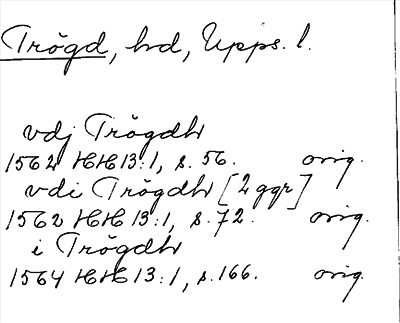 Trögd, hd, Upps. l.
vdj Trögdh
1562 HH 13:1, s. 56. orig.
vdi Trögdh [2 ggr]
1562 HH 13:1, s. 72. orig.
i Trögdh
1564 HH 13:1, s. 166. orig.